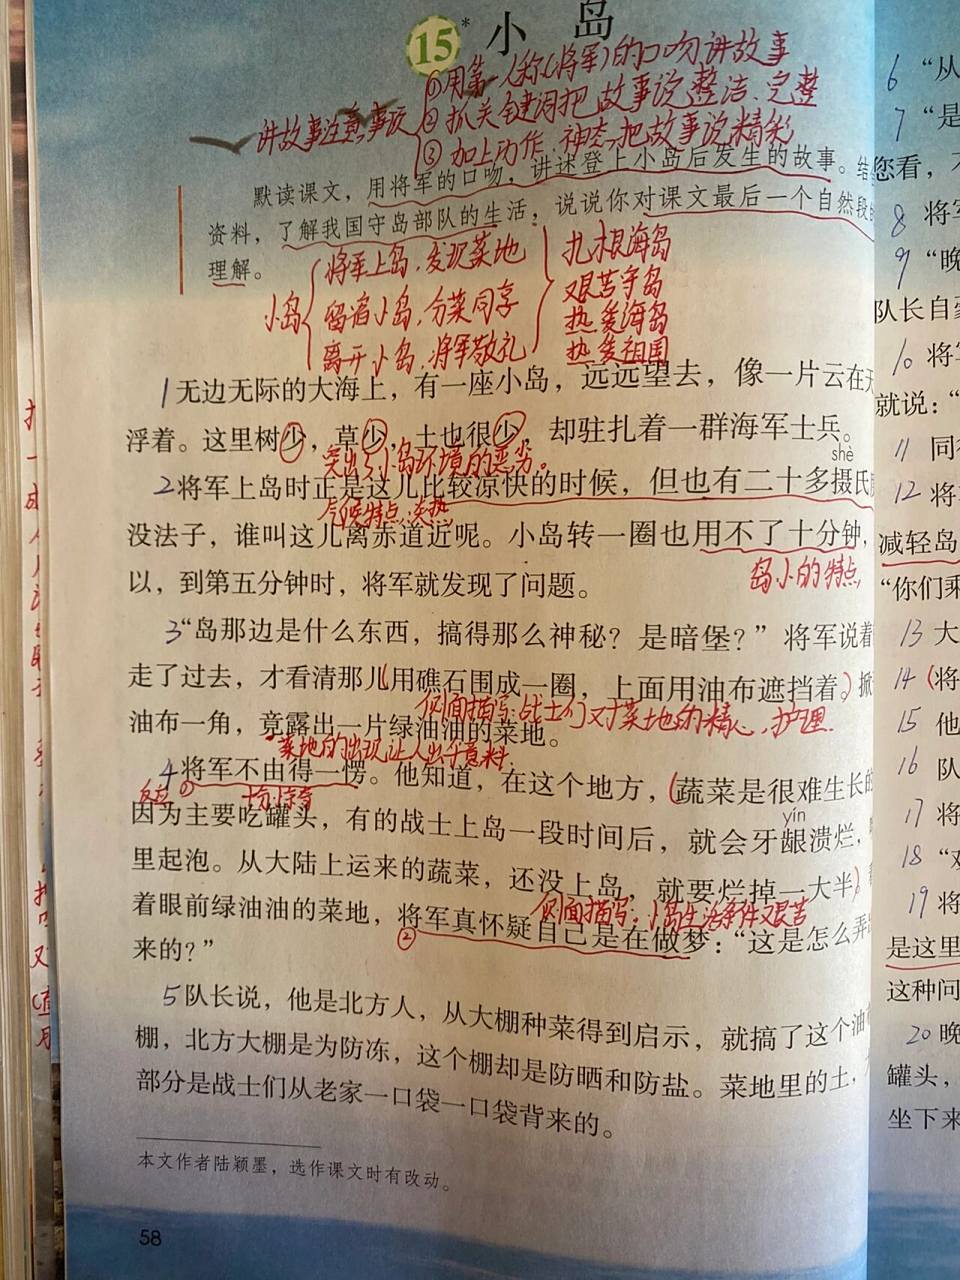 15* 小岛
讲故事注意事项
①用第一人称(将军)的口吻讲故事
②抓关键词把故事说整洁、完整
③加上动作、神态把故事说精彩
默读课文，用将军的口吻，讲述登上小岛后发生的故事。结
资料，了解我国守岛部队的生活；说说你对课文最后一个自然段
理解。
小岛
将军上岛，发现菜地
留宿小岛，分菜同享
离开小岛，将军敬礼
扎根海岛
艰苦守岛
热爱海岛
热爱祖国
1 无边无际的大海上，有一座小岛，远远望去，像一片云在天
浮着。这里树少，草少，土也很少，却驻扎着一群海军士兵。
突出了小岛环境的恶劣。
shè
2 将军上岛时正是这儿比较凉快的时候，但也有二十多摄氏
气候特点：炎热
没法子，谁叫这儿离赤道近呢。小岛转一圈也用不了十分钟，
岛小的特点
以，到第五分钟时，将军就发现了问题。
3 “岛那边是什么东西，搞得那么神秘？是暗堡？”将军说着
走了过去，才看清那儿(用礁石围成一圈，上面用油布遮挡着。)掀
侧面描写：战士们对菜地的精心护理.
油布一角，竟露出一片绿油油的菜地。
菜地的出现让人出乎意料.
4 将军不由得一愣。他知道，在这个地方，(蔬菜是很难生长的
反应 ① 十分惊奇
yín
因为主要吃罐头，有的战士上岛一段时间后，就会牙龈溃烂，
里起泡。从大陆上运来的蔬菜，还没上岛，就要烂掉一大半)
侧面描写：小岛生活条件艰苦
着眼前绿油油的菜地，将军真怀疑自己是在做梦：“这是怎么弄
②
来的？”
5 队长说，他是北方人，从大棚种菜得到启示，就搞了这个油
棚，北方大棚是为防冻，这个棚却是防晒和防盐。菜地里的土，
部分是战士们从老家一口袋一口袋背来的。
本文作者陆颖墨，选作课文时有改动。
58
6 “从
7 “是
您看，
8 将军
9 “晚
队长自豪
10 将
就说：“
11 同
12 将
减轻岛
“你们乘
13 大
14 (将
15 他
16 队
17 将
18 “
19 将
是这里
这种问
20 晚
罐头，
坐下来